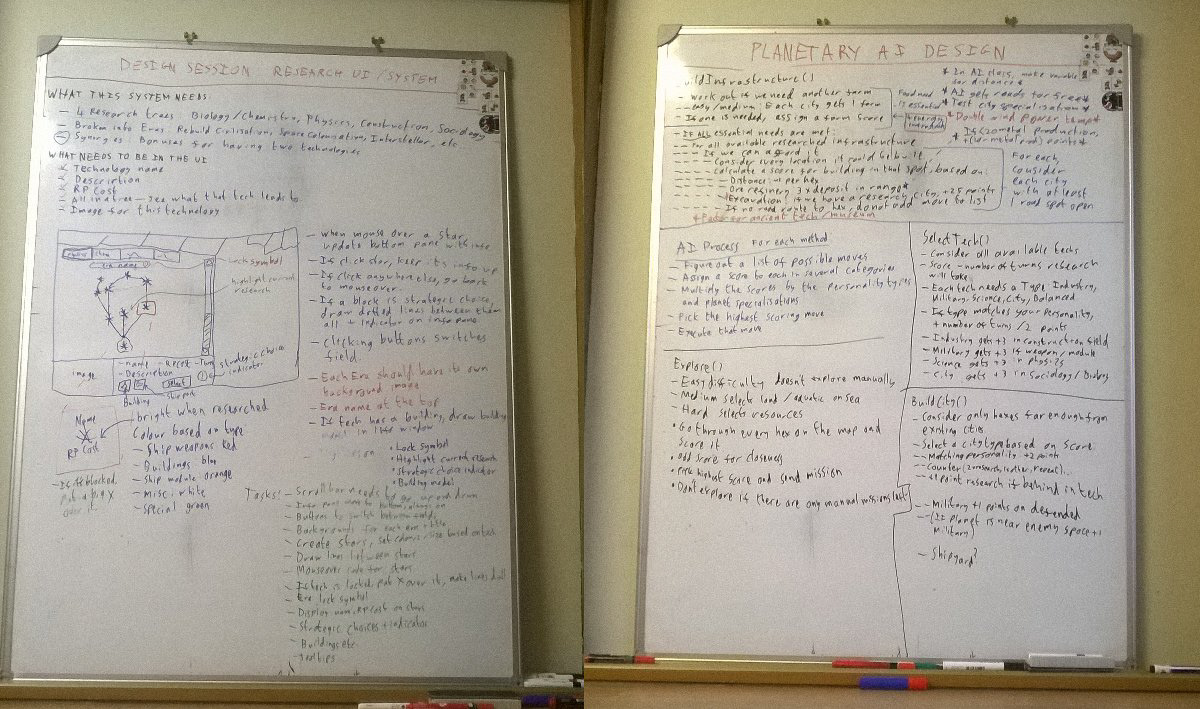 DESIGN SESSION RESEARCH UI/SYSTEM
WHAT THIS SYSTEM NEEDS:
- 4 Research trees: Biology/Chemistry, Physics, Construction, Sociology
- Broken into Eras: Rebuild Civilisation, Space Colonisation, Interstellar, etc
- Synergies: Bonuses for having two technologies
WHAT NEEDS TO BE IN THE UI
* Technology name
* Description
* RP Cost
* All in a tree - see what that tech leads to
* Image for this technology
- When mouse over a star, update bottom pane with info
- If click star, keep its info up
- If click anywhere else, go back to mouseover.
- If a block is strategic choice, draw dotted lines between them all + indicator on info pane
- Clicking buttons switches field.
- Each Era should have its own background image
- Era name at the top
- If tech has a building, draw building model in window
• Lock symbol
• Highlight current research
• Strategic choice indicator
• Building model
Lock symbol
highlight current research
Strategic choice indicator
image
- name - RP cost
- Description
select
Building
Name
RP Cost
bright when researched
Colour based on type
- Ship weapons red
- Buildings blue
- Ship module orange
- misc. white
- special green
- If it's blocked, put a big X over it
Tasks!
- Scrollbar needs to go up and down
- Buttons to switch between fields
- Backgrounds for each era + title
- Create stars, set colours/size based on tech
- Draw lines between stars
- Mouseover code for stars
- If tech is locked, put X over it, make lines dull
- Era lock symbol
- Display name, RP cost on stars
- Strategic choices + indicator
- Buildings etc
- Tooltips
PLANETARY AI DESIGN
BuildInfrastructure()
- Work out if we need another farm
-- easy/medium: Each city gets 1 farm
- If one is needed, assign a farm score
Food need is essential
* In AI class, make variable for distance *
* AI gets roads for free *
* Test city specialisation *
- If ALL essential needs are met:
-- For all available researched infrastructure
--- If we can afford it
---- Consider every location it could be built
---- Calculate a score for building in that spot, based on:
Distance, per hex
Ore refinery 3 x deposit in range*
Excavation: if we have a research city, +25 points
If no road route to hex, do not add move to list
* Factor for ancient tech/museum
For each, consider each city with at least 1 road spot open
AI Process For each method
- Figure out a list of possible moves
- Assign a score to each in several categories
- Multiply the scores by the personality types and planet specialisations
- Pick the highest scoring move
- Execute that move
SelectTech()
- Consider all available techs
- Score - number of turns research will take
- Each tech needs a Type: Industry, Military, Science, City, Balanced
- If type matches your personality, + number of turns/2 points
- Industry gets +3 in construction field
- Military gets +3 if weapon/module
- Science gets +3 in physics
- City gets +3 in Sociology/Biology
Explore()
- Easy difficulty doesn't explore manually
- Medium selects land/aquatic on sea
- Hard selects resources
• Go through every hex on the map and score it
• Add score for closeness
• Pick highest score and send mission
• Don't explore if there are any manual missions left
BuildCity()
- Consider only hexes far enough from existing cities
- Select a city type based on score
- Matching personality +2 points
- +1 point research if behind in tech
- Military +1 points on defended
- (If planet is near enemy space +1 Military)
- Shipyard?